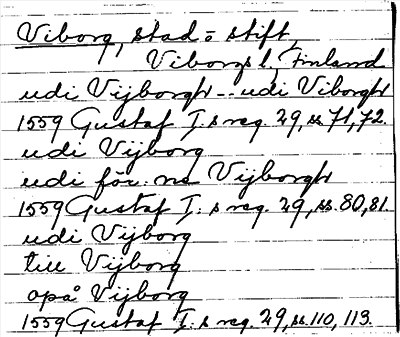 Viborg, stad o stift,
Viborgs l., Finland
udi Vijborgh -- udi Viborgh
1559 Gustaf I:s reg. 29, ss. 71, 72.
udi Vijborg
udi för:ne Vijborgh
1559 Gustaf I:s reg. 29, ss. 80, 81.
udi Vijborg
till Vijborg
opå Vijborg
1559 Gustaf I:s reg. 29, ss. 110, 113.